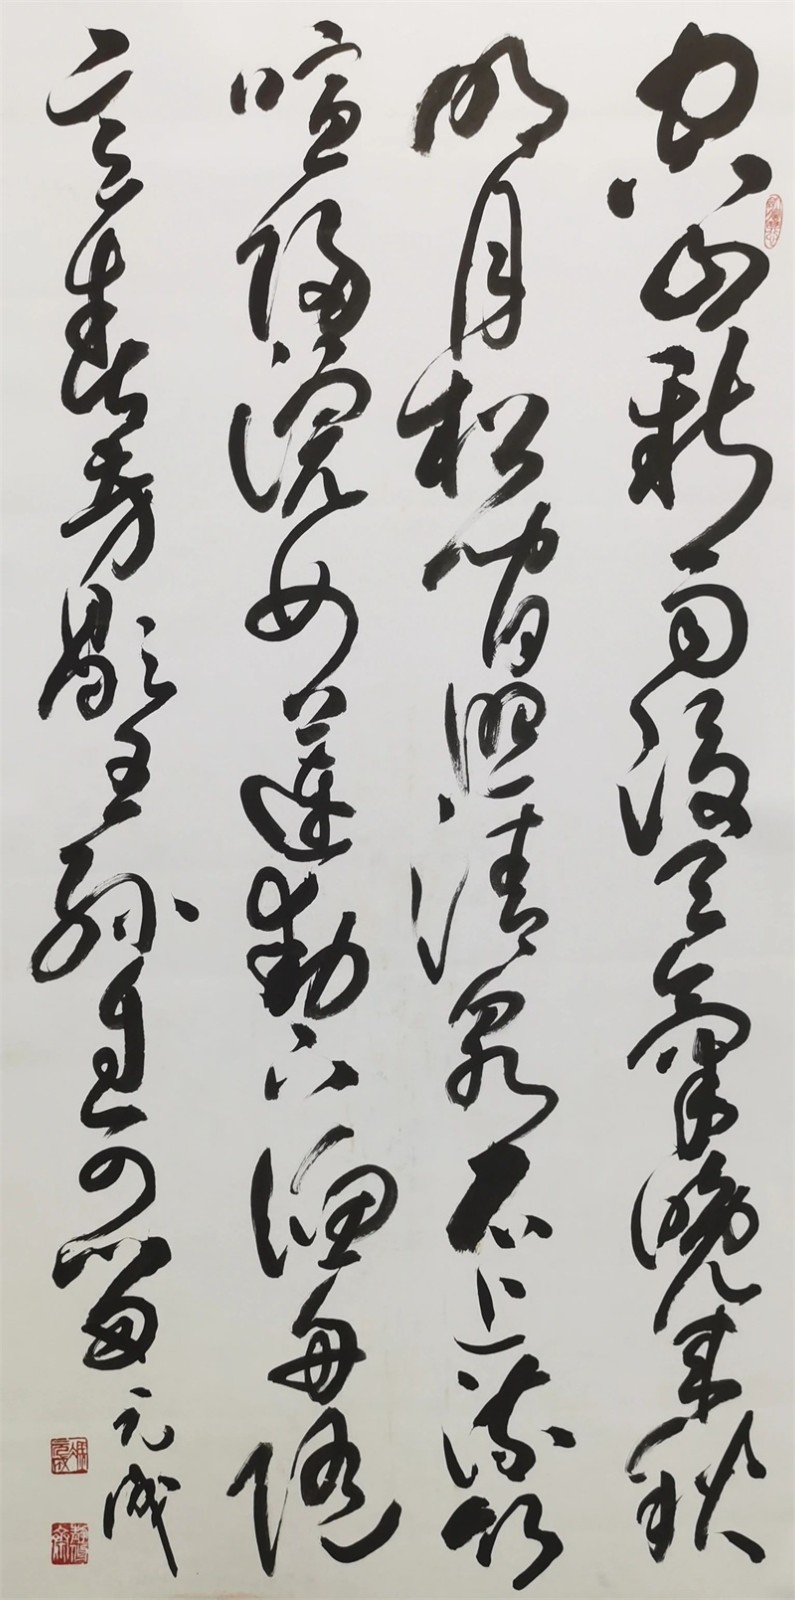 空山新雨後天氣晚來秋
明月松間照清泉石上流竹
喧歸浣女蓮動下漁舟随
意春芳歇王孫自可留
元成